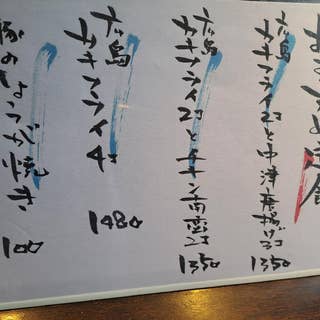 おすすめ定食
大島
カキフライ2コと中津唐揚げ3コ
1350
大島
カキフライ2コとチキン南蛮2コ
1350
大島
カキフライ4コ
1480
豚のしょうが焼き
1100